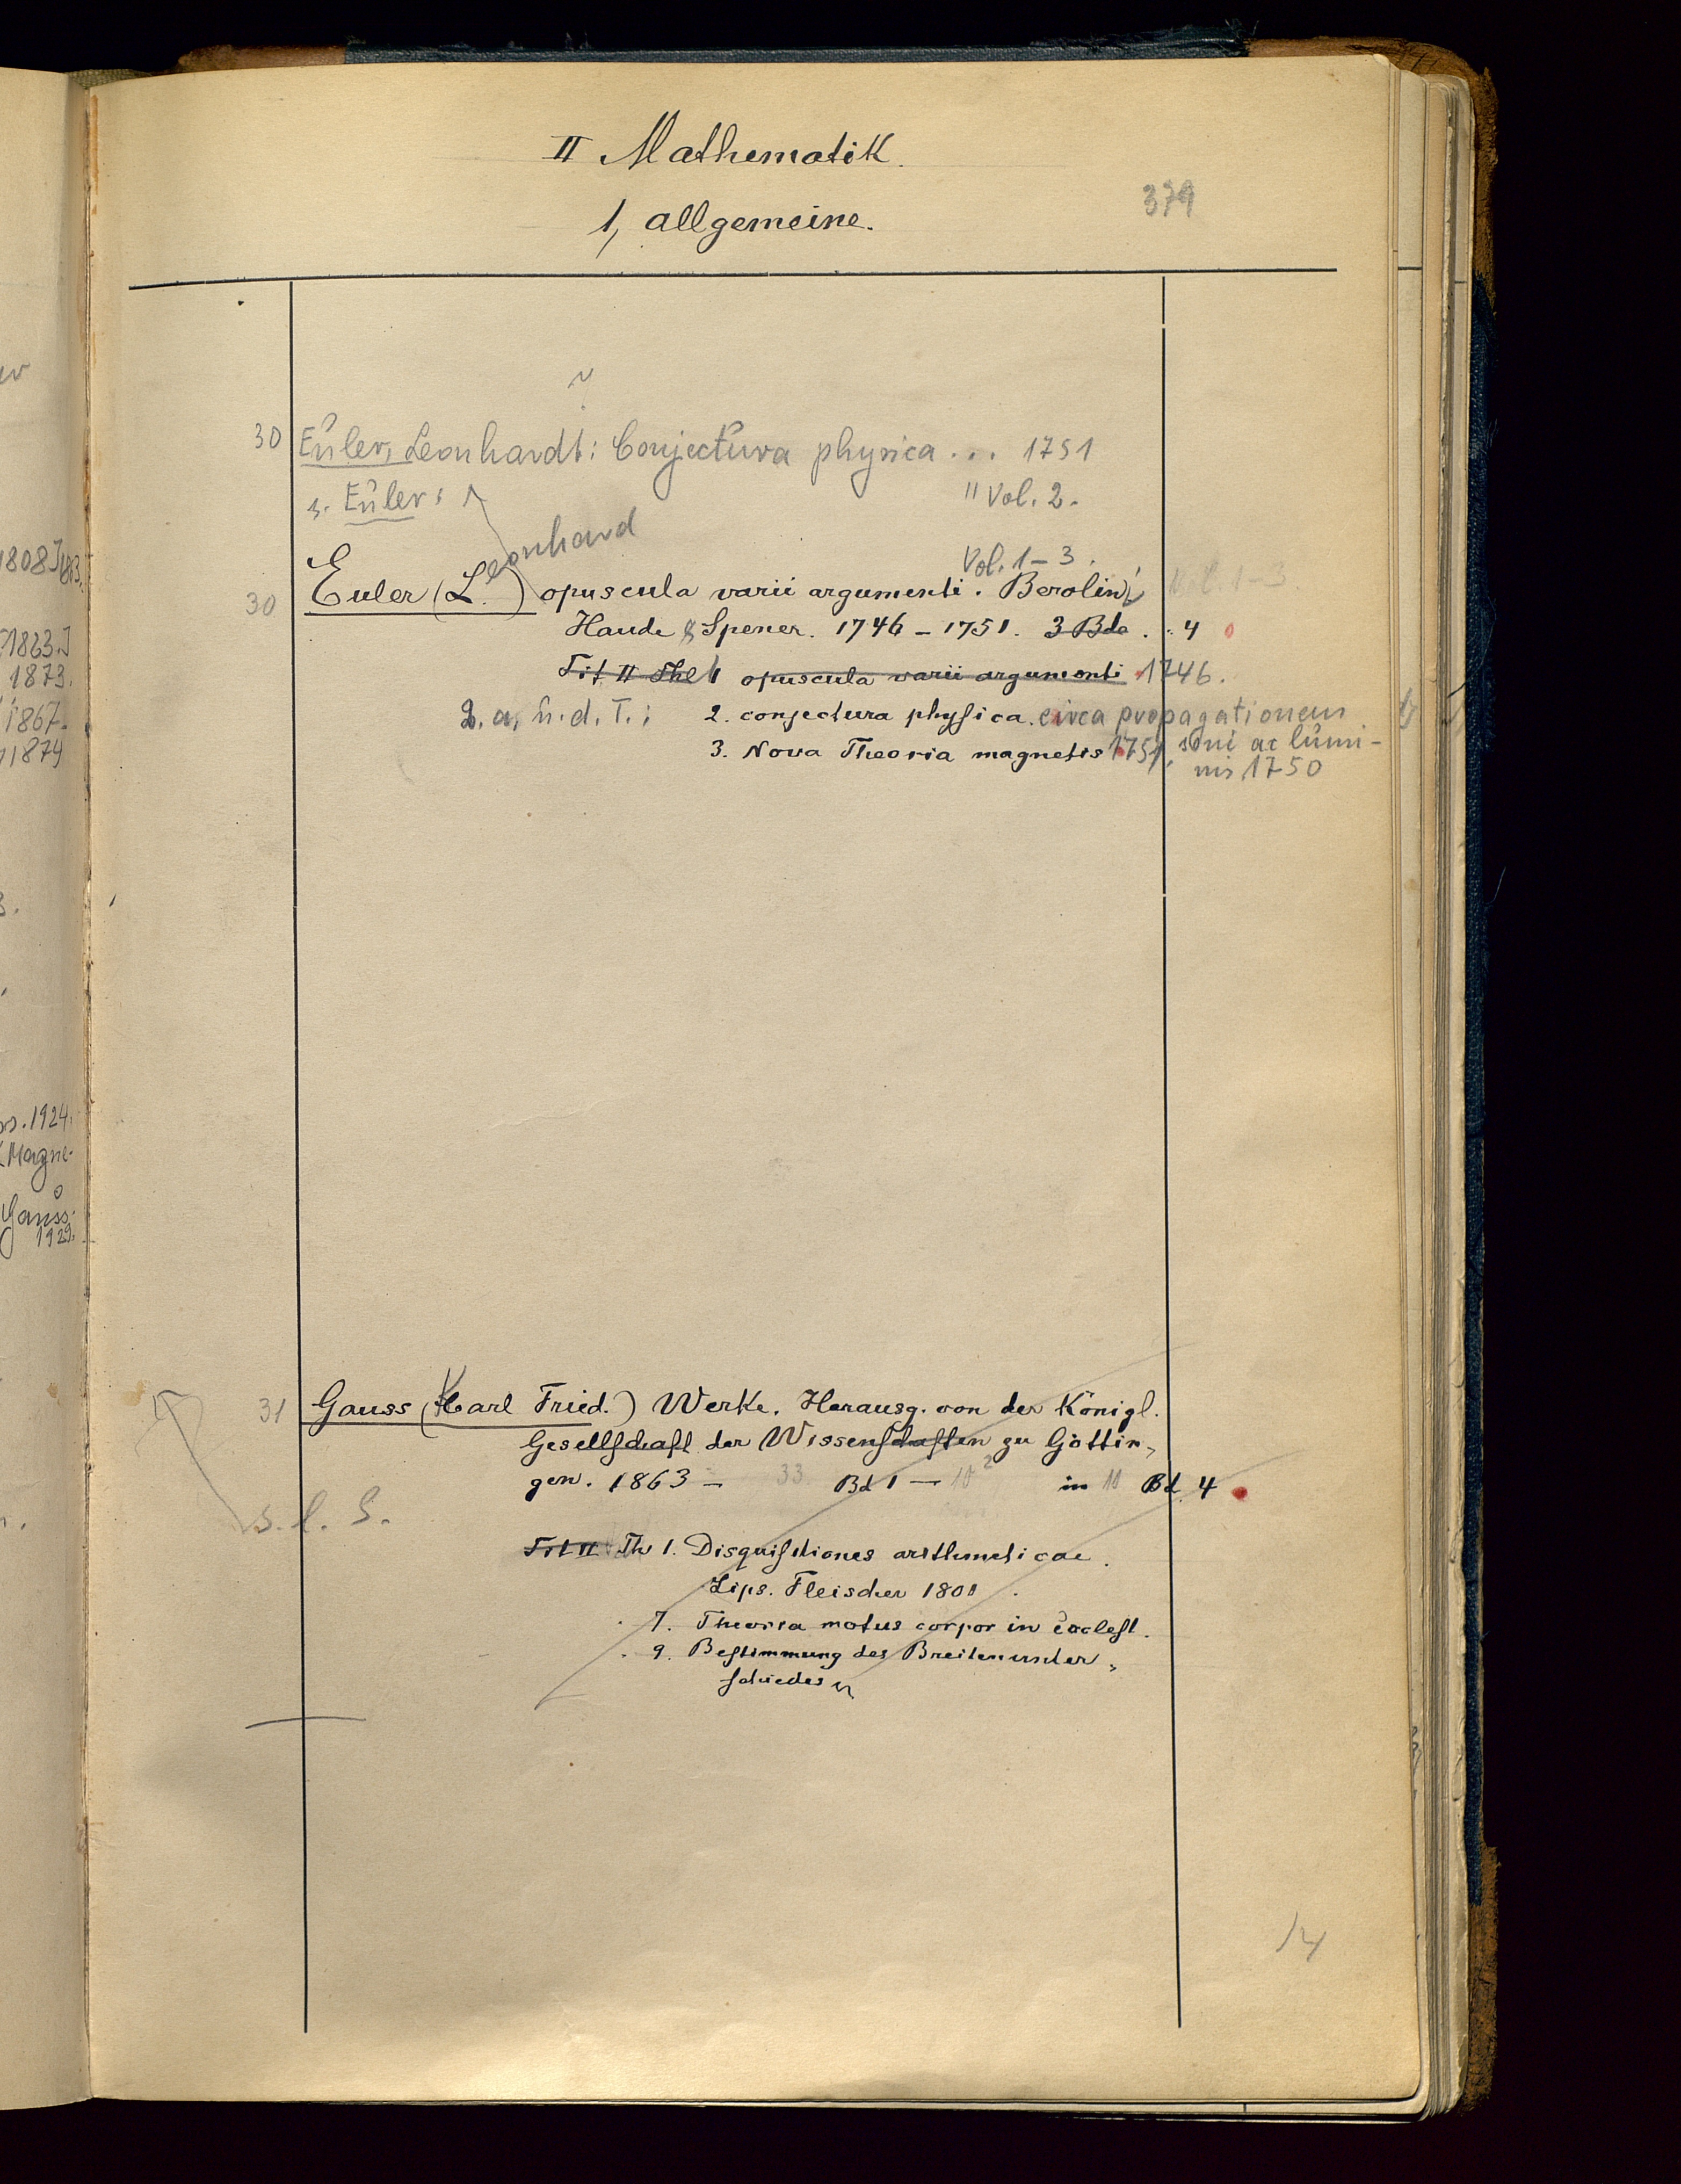 II Mathematik.
379
1, allgemeine.
30 Euler, Leonhardt: Conjectura physica... 1751
s. Euler: " Vol. 2.
Leonhard
Vol. 1-3.
30 Euler (L.) opuscula varii argumenti. Berolini Vol. 1-3
Haude & Spener. 1746-1751. 3 Bde. 4
Tit II Thl 1 opuscula varii argumenti 1746.
2. a. u. d. T.: 2. conjectura physica. circa propagationem
3. Nova Theoria magnetis 1751, soni ac lumi-
nis 1750
31 Gauss (Karl Fried.) Werke. Herausg. von der Königl.
Gesellschaft der Wissenschaften zu Göttin-
gen. 1863 - 33 Bd 1 - 10² in 11 Bd. 4
s. l. S.
Tit II Th 1. Disquisitiones arithmeticae.
Lips. Fleischer 1801.
7. Theoria motus corpor in coelest.
9. Bestimmung des Breitenunter-
schiedes
14
1808]
1863.]
1873.
1867.
1879
1924.
(Magne-
Gauss:
1929.